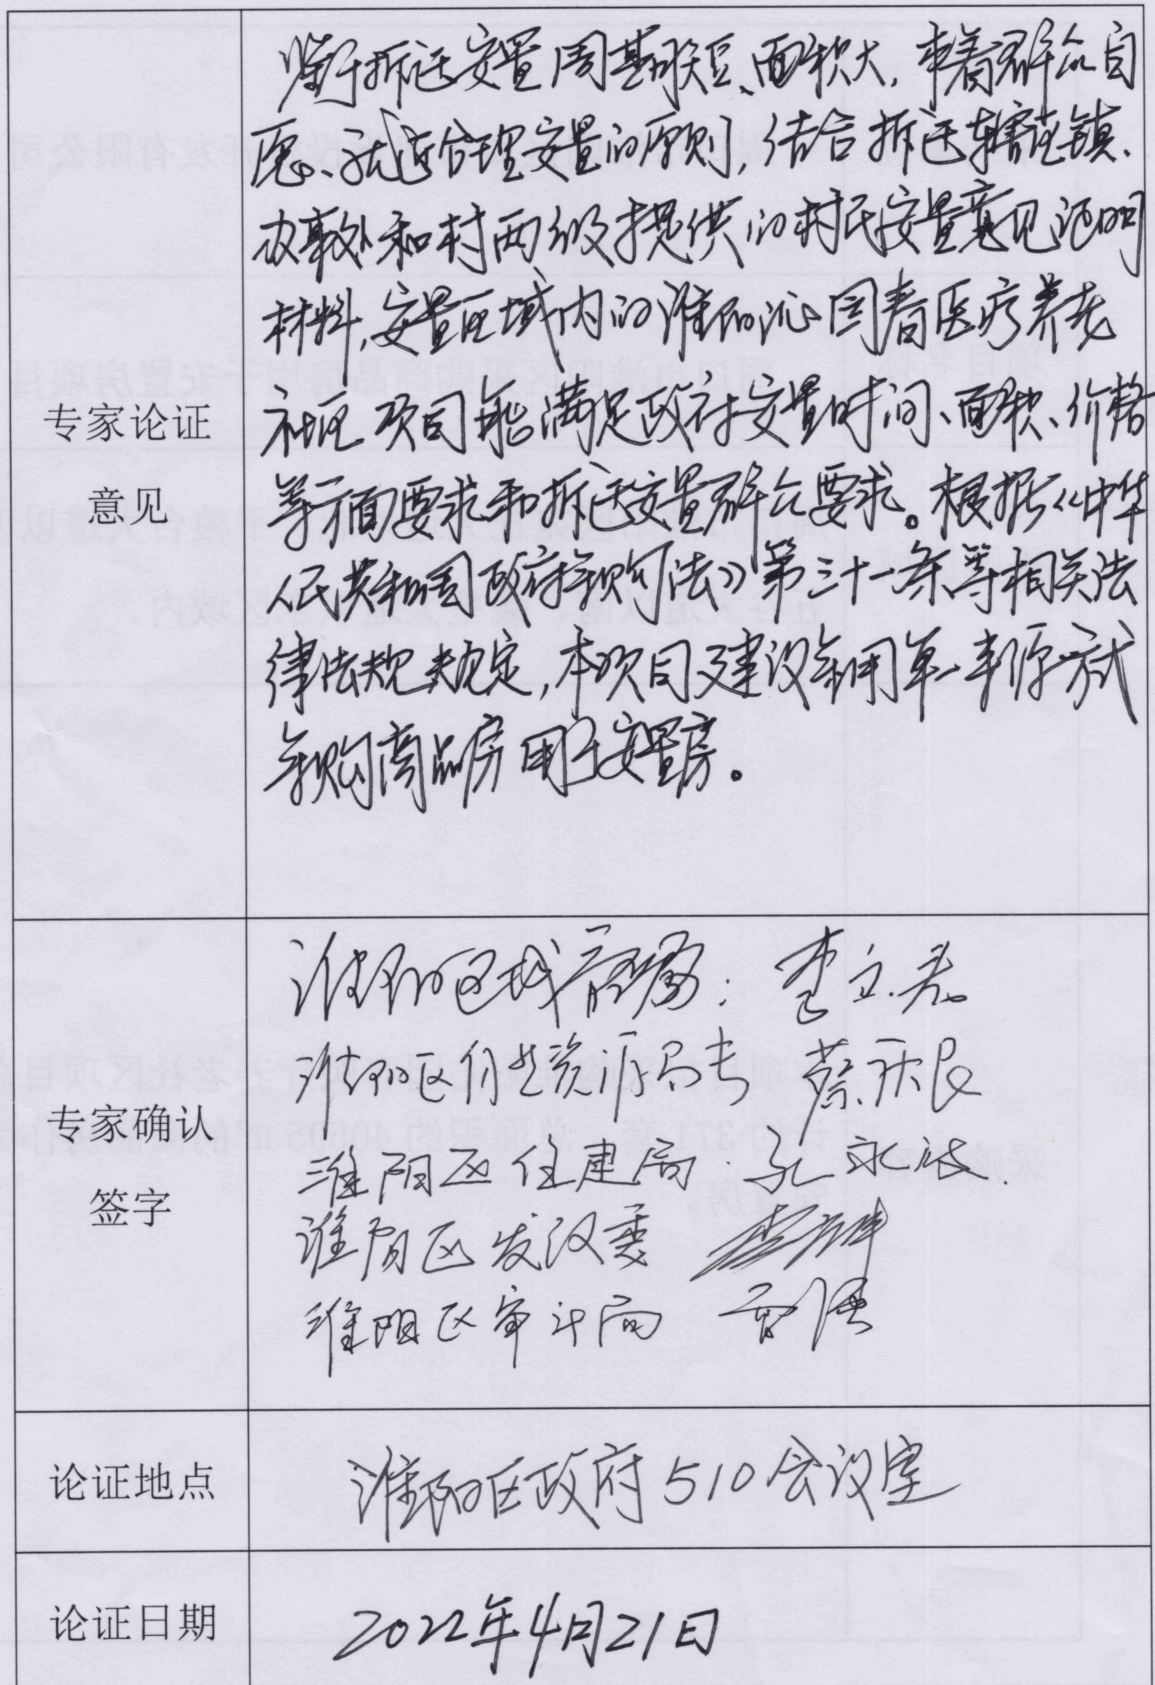 鉴于拆迁安置周期短、面积大,本着群众自
愿、就近合理安置的原则,结合拆迁辖区镇、
办事处和村两级提供的村民安置意见证明
材料,安置区域内的淮阳沁园春医疗养老
社区项目能满足政府安置时间、面积、价格
专家论证
等方面要求和拆迁安置群众要求。根据《中华
意见
人民共和国政府采购法》第三十一条等相关法
律法规规定,本项目建议采用单一来源方式
采购商品房用于安置房。
淮阳区城管局: 李立志
淮阳区自然资源局 蔡庆良
专家确认
淮阳区住建局 孔永
签字
淮阳区发改委 李
淮阳区审计局
论证地点
淮阳区政府510会议室
论证日期
2022年4月21日